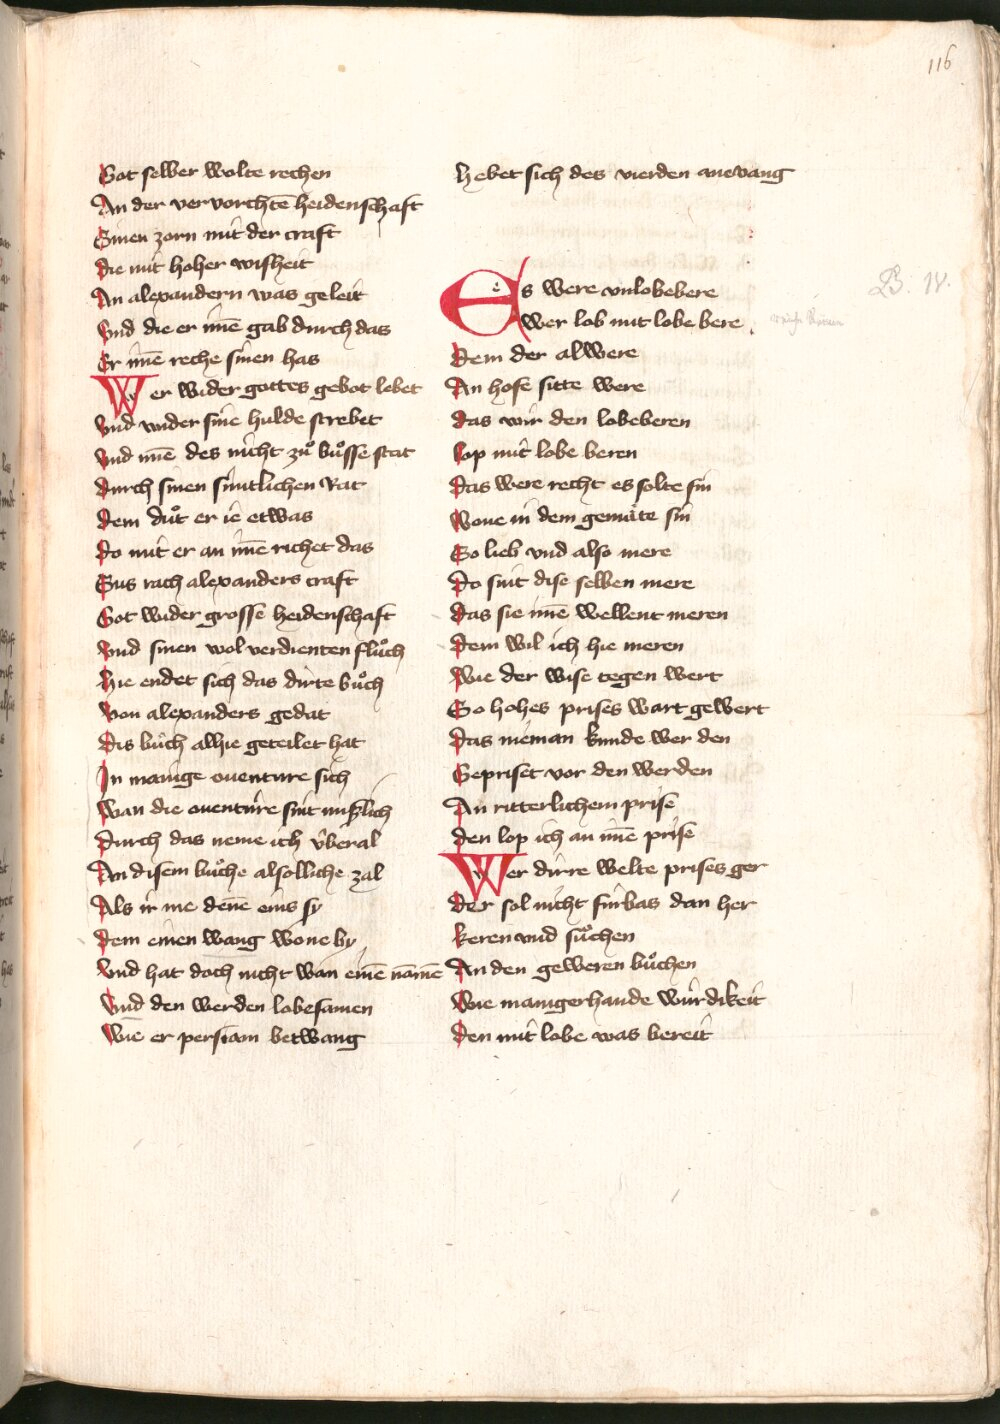 116
Got selber wolte rechen
An der vervorchtē heidenschaft
Sinen zorn mit der craft
die mit hoher wisheit
An alexandern was geleit
Vnd die er imē gab durch das
Er imē reche sinen has
Wer wider gottes gebot lebet
Vnd wider sine hulde strebet
Vnd imē des nicht zuͦ buͦsse stat
durch sinen sintlichen Rat
dem duͦt er ie etwas
Do mit er an imē richet das
Sus rach alexanders craft
Got wider grosse heidenschaft
Vnd sinen wol verdienten fluͦch
hie endet sich das dirte buͦch
Von alexanders gedat
Dis buͦch alhie geteilet hat
In manige ouenture sich
Wan die ouenture sint mislich
Durch das neme ich v̂beral
An disem buͦche alsolliche zal
Als ir me denē eins sy
Dem einen wang wone by
Vnd hat doch nicht wan einē namē
Vnd den werden lobesamen
Wie er persiam betwang
hebet sich des vierden anevang
Es were vnlobebere
Wer lob mit lobe bere
Dem der alwere
An hofe sitte were
das wir den lobeberen
lop mit lobe beren
Das were recht es solte sin
Wone in dem gemuͤte sin
So lieb vnd also mere
Do sint dise selben mere
Das sie imē wellent meren
Dem wil ich hie meren
Wie der wise tegen wert
So hohes prises wart gewert
Das nieman kunde wer den
Gepriset vor den werden
An ritterlichem prise
den lop ich an imē prise
Wer dirre welte prises ger
Der sol nicht fúrbas dan her
keren vnd suͦchen
An den geweren buͦchen
Wie manigerhande wúrdikeit
Den mit lobe was bereit
B. IV.